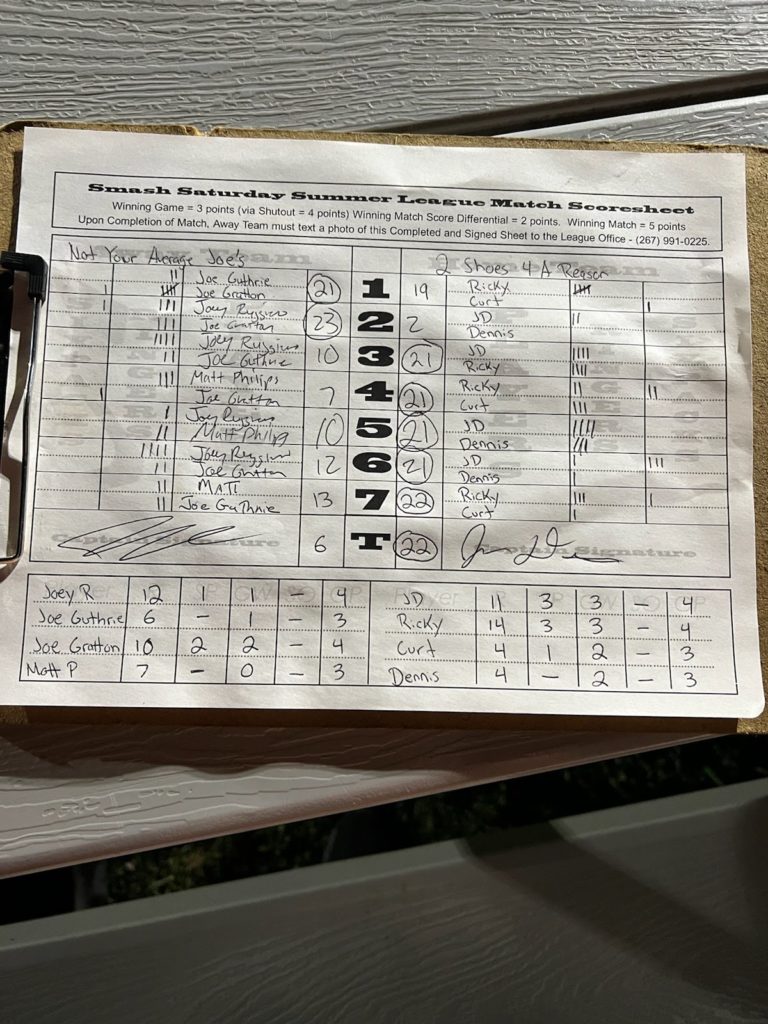 Smash Saturday Summer League Match Scoresheet
Winning Game = 3 points (via Shutout = 4 points) Winning Match Score Differential = 2 points. Winning Match = 5 points
Upon Completion of Match, Away Team must text a photo of this Completed and Signed Sheet to the League Office - (267) 991-0225.
Not Your Average Joe's 2 Shoes 4 A Reason
Joe Guthrie 21 1 19 Ricky
Joe Gratton Curt
Joey Ruggiero 23 2 2 JD
Joe Gratton Dennis
Joey Ruggiero 10 3 21 JD
Joe Guthrie Ricky
Matt Philips 7 4 21 Ricky
Joe Gratton Curt
Joey Ruggiero 10 5 21 JD
Matt Philips Dennis
Joey Ruggiero 12 6 21 JD
Joe Gratton Dennis
MATT 13 7 22 Ricky
Joe Guthrie Curt
Captain Signature 6 T 22 Captain Signature
Joey R 12 1 1 - 4 JD 11 3 3 - 4
Joe Guthrie 6 - 1 - 3 Ricky 14 3 3 - 4
Joe Gratton 10 2 2 - 4 Curt 4 1 2 - 3
Matt P 7 - 0 - 3 Dennis 4 - 2 - 3